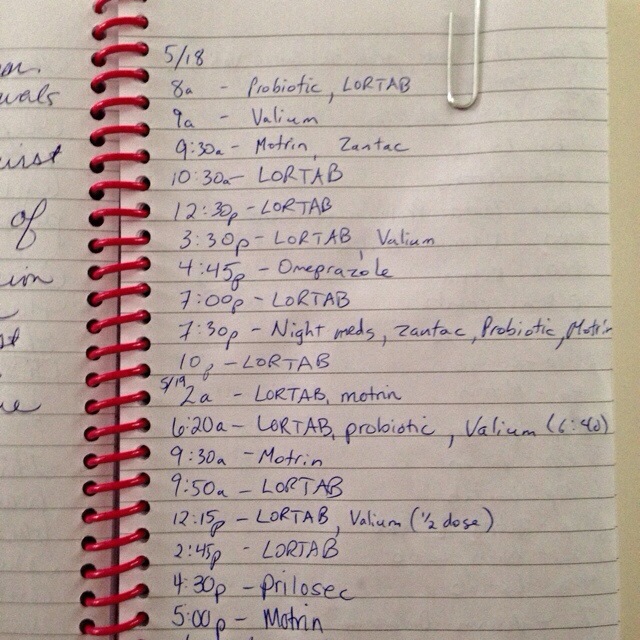 5/18
8a - Probiotic, LORTAB
9a - Valium
9:30a - Motrin, Zantac
10:30a - LORTAB
12:30p - LORTAB
3:30p - LORTAB, Valium
4:45p - Omeprazole
7:00p - LORTAB
7:30p - Night meds, Zantac, Probiotic, Motrin
10p - LORTAB
5/19
2a - LORTAB, motrin
6:20a - LORTAB, probiotic, Valium (6:40)
9:30a - Motrin
9:50a - LORTAB
12:15p - LORTAB, Valium (1/2 dose)
2:45p - LORTAB
4:30p - Prilosec
5:00p - Motrin
of